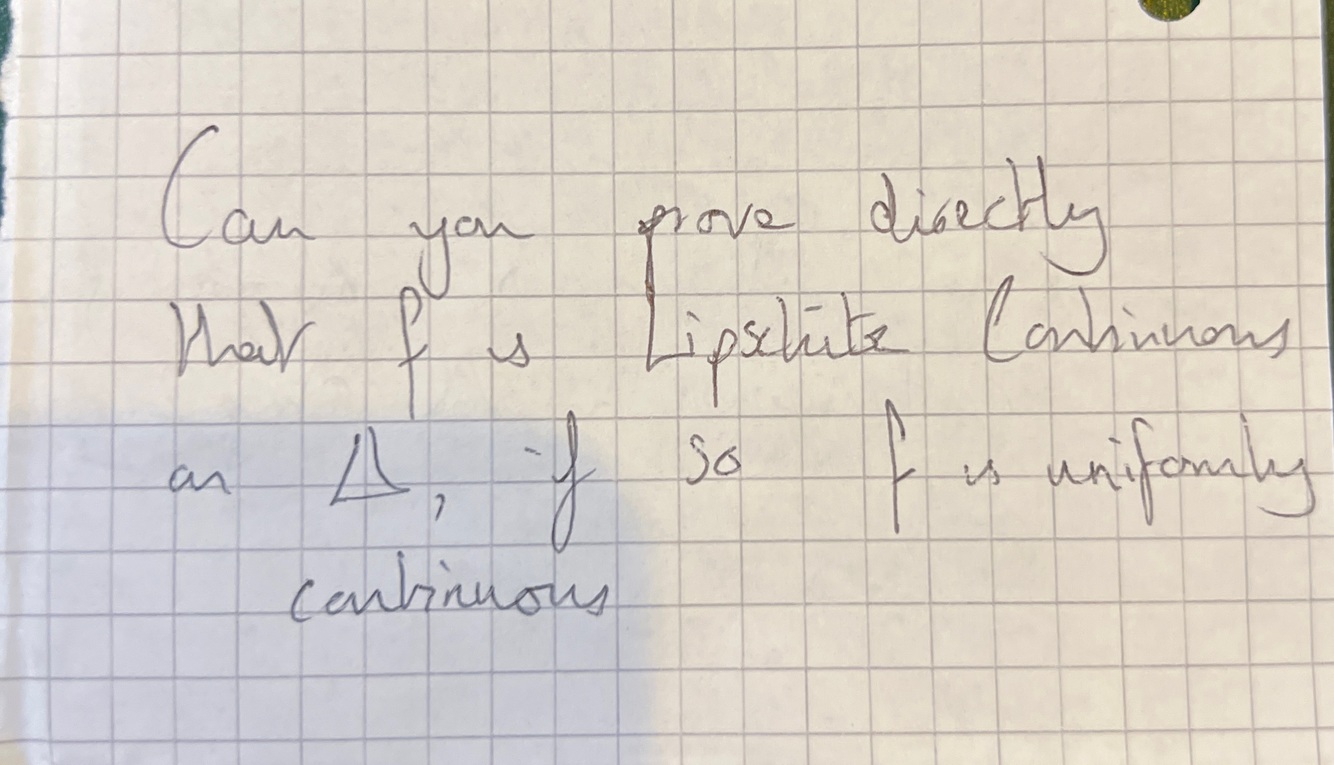 Can you prove directly
that f is Lipschitz Continuous
on Δ, if so f is uniformly
continuous